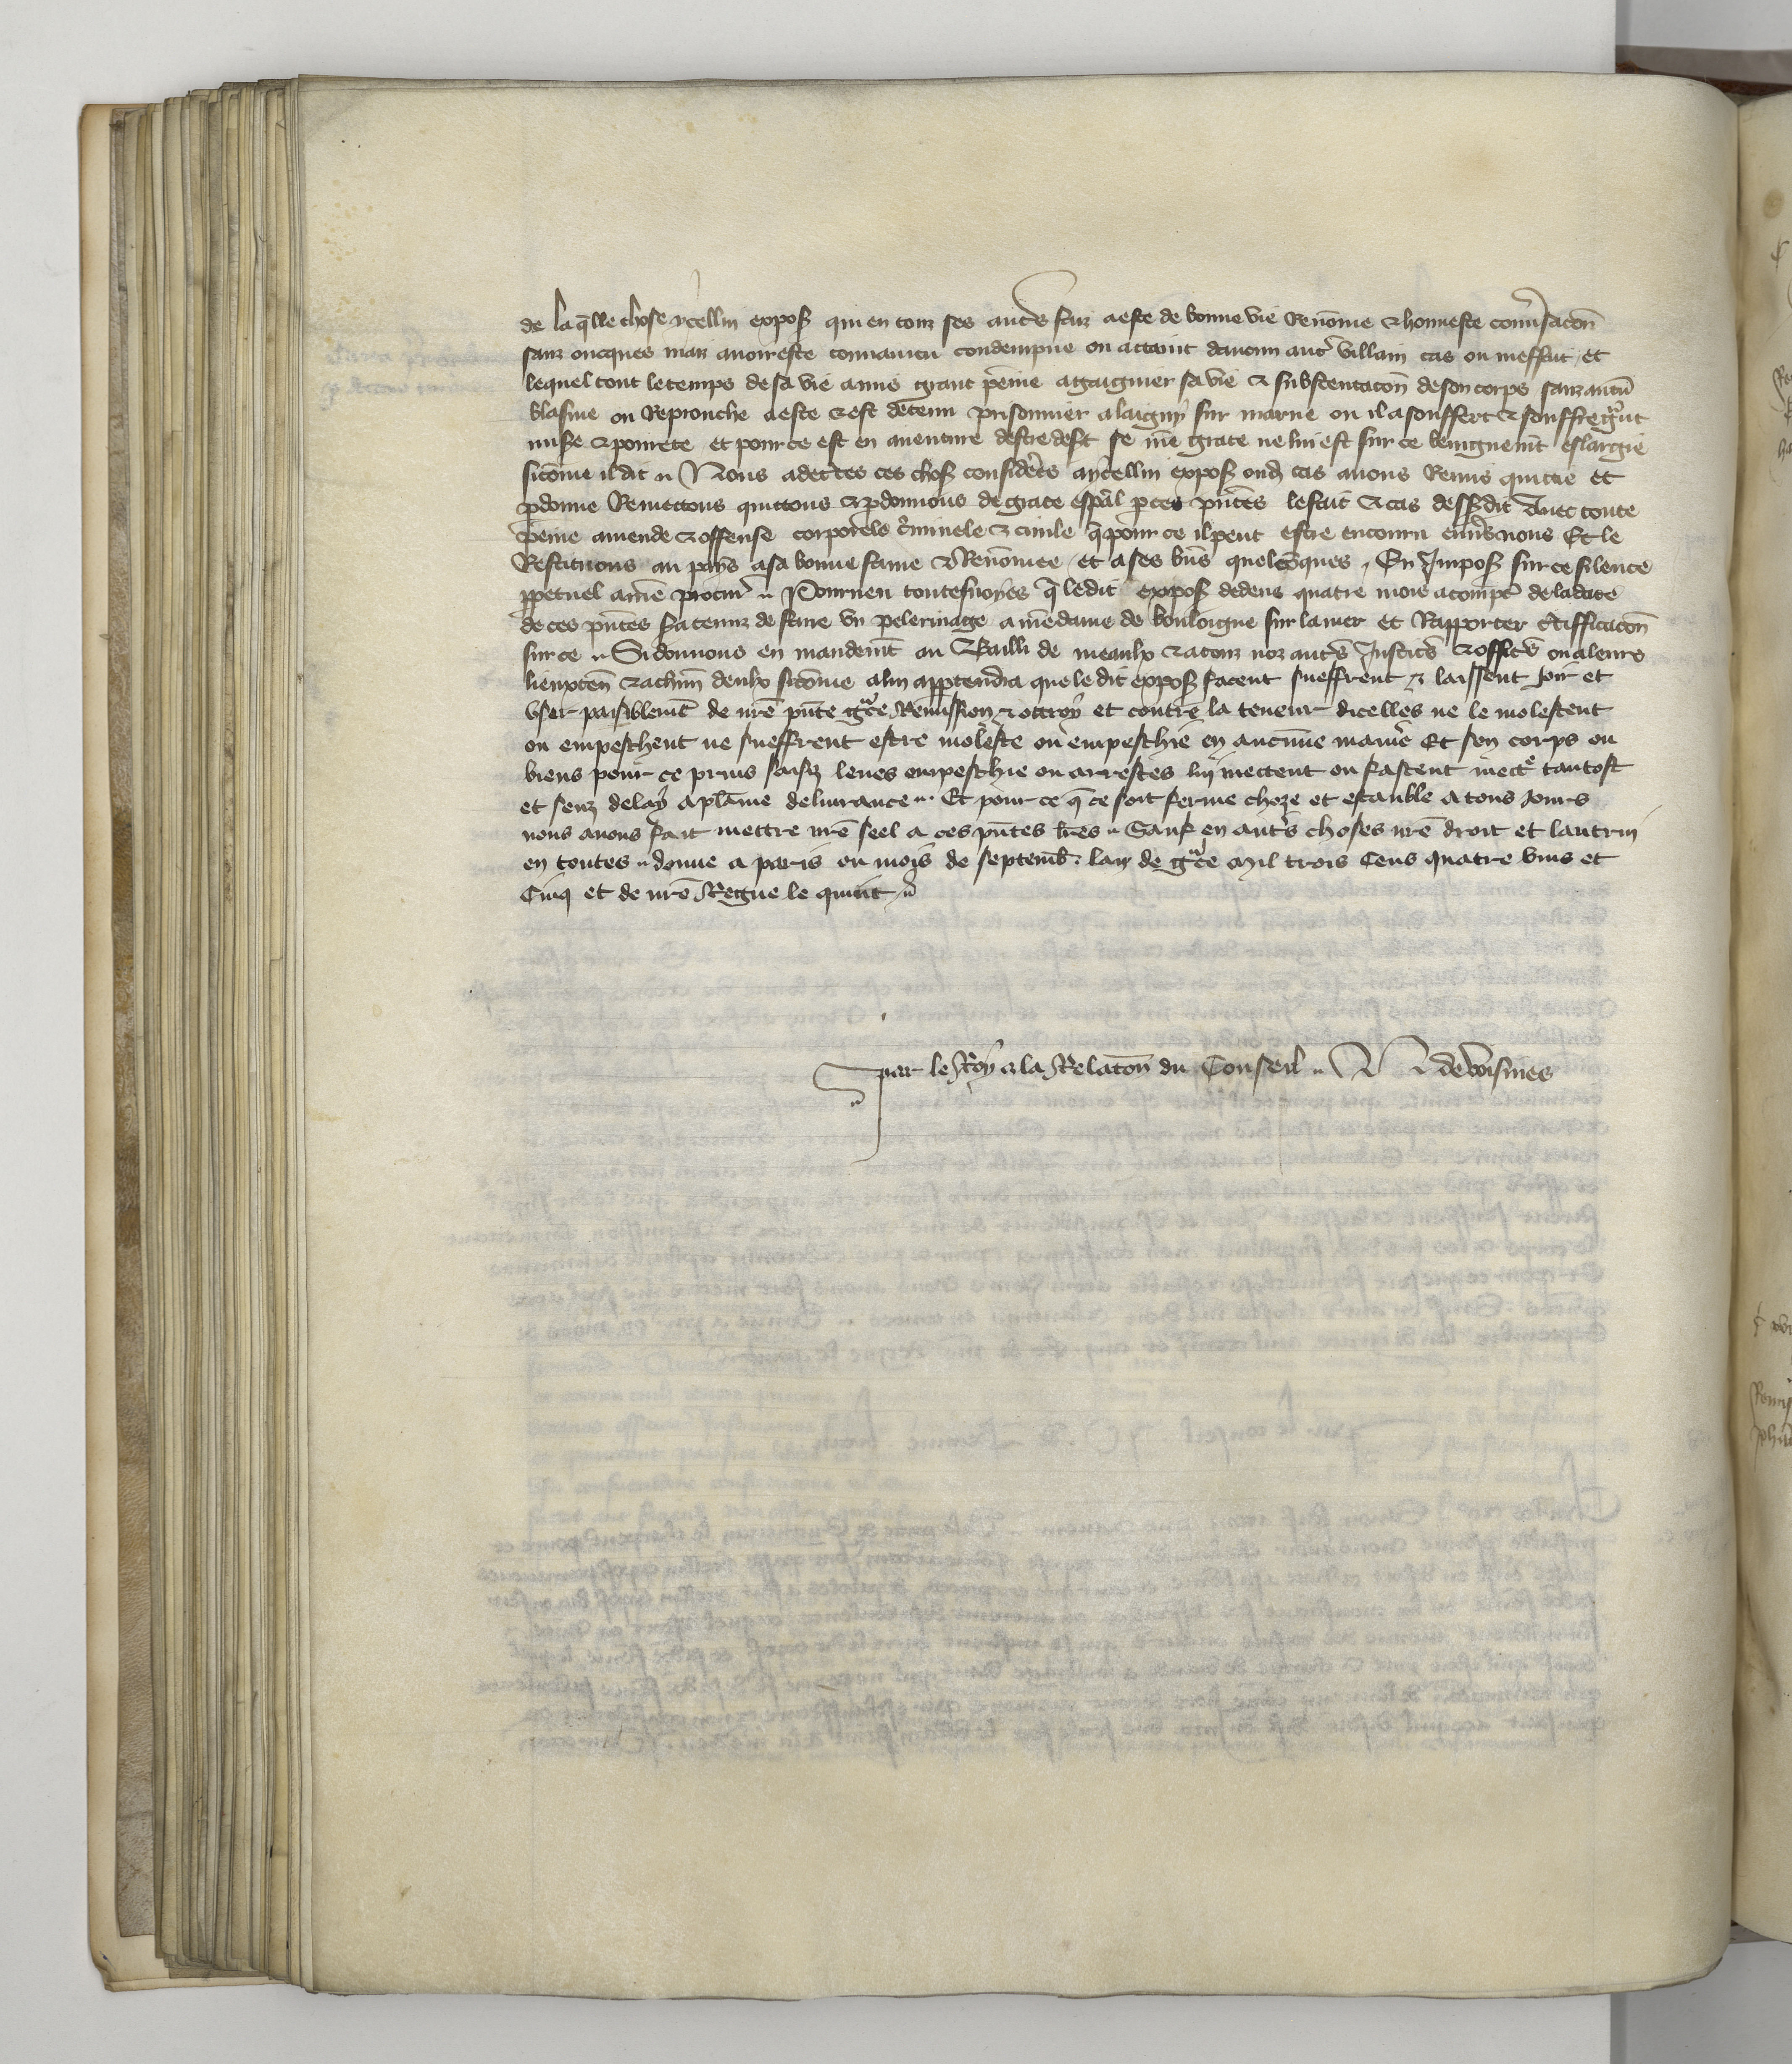 de laq̄lle chose ycellui expos̄ qui en touz ses autr̄s faiz a este de bonne vie Renōmee & honneste conūsacōn
sanz oncques maiz auoir este conuaincu condempne ou attaint daucun autr̄ villain cas ou meffait et
lequel tout le temps de sa vie a mis grant peine a gaaignier sa vie & substentacōn de son corps sanz aucū
blasme ou Reprouche a este & est detenu prisonnier a laigny sur marne ou il a souffert & souffre
 & pourete et pour ce est en auenture destre desf̄ se nr̄e grace ne lui est sur ce benignemt̄ eslargie
sicōme il dit Nous adecertes ces chos̄ considerēes aycellui expos̄ oud̄ cas auons Remis quicte et
p̱donne Remettons quittons & p̱donnons de grace esp̄al p̱ ces pn̄tes le fait & cas dessusdit Auec toute
peine amende & offense corporele criminele & ciuile q̄ pour ce il peut estre encouru enūs nous Et le
Restituons au pays a sa bonne fame & Renōmee et a ses bn̄s quelcōques En Impos̄ sur ce silence
p̱petuel a nr̄e procur̄ Pourueu touteuoyes q̄ ledit expos̄ dedens quatre mois a compt̄ de la date
de ces pn̄tes sa tenuz de faire vn pelerinage a nr̄e dame de bouloigne sur la mer et Rapporter c̄tifficacōn
sur ce Si donnons en mandemt̄ au Bailli de meaulx & a touz noz autr̄s Justic̄s & offic̄s ou a leurs
lieuxten̄ & a chūn deulx sicōme a lui app̱tendra que le dit expos̄ facent sueffrent & laissent Joir et
vser paisiblemt̄ de nr̄e pn̄te gr̄ce Remission & ottroy et contre la teneur dicelles ne le molestent
ou empeschent ne sueffrent estre moleste ou empeschie en aucunne manier̄ Et son corps ou
biens pour ce prins saisiz leues empeschie ou arrestes luy mectent ou facent mectr̄ tantost
et senz delay a plāine deliurance Et pour ce q̄ ce soit ferme choze et estauble a tous Jours
nous auons fait mettre nr̄e seel a ces pn̄tes lr̄es Sauf en autr̄s choses nr̄e droit et lautruy
en toutes donne a paris ou mois de septemb̄ lan de gr̄ce mil trois Cens quatre vins et
Cinq et de nr̄e Regne le quint
par le Roy a la Relacōn du Conseil N de voisines